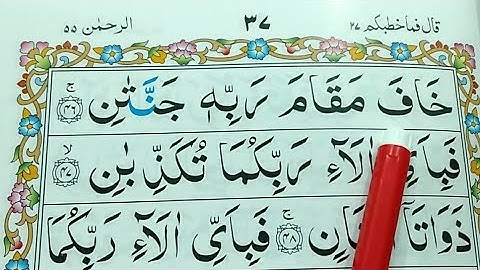 قال فما خطبكم ٢٧ ٣٧ الرحمٰن ٥٥
خَافَ مَقَامَ رَبِّهٖ جَنَّتٰنِ ۚ ﴿٤٦﴾
فَبِاَىِّ اٰلَآءِ رَبِّكُمَا تُكَذِّبٰنِ ۙ ﴿٤٧﴾
ذَوَاتَاۤ ﴿٤٨﴾ ۚ فَبِاَىِّ اٰلَآءِ رَبِّكُمَا